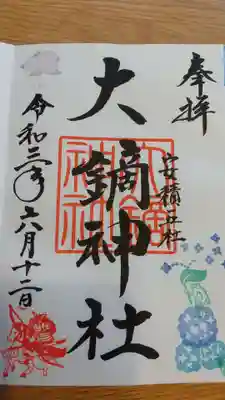 奉拝
安積五社
大鏑神社
令和三年六月十二日